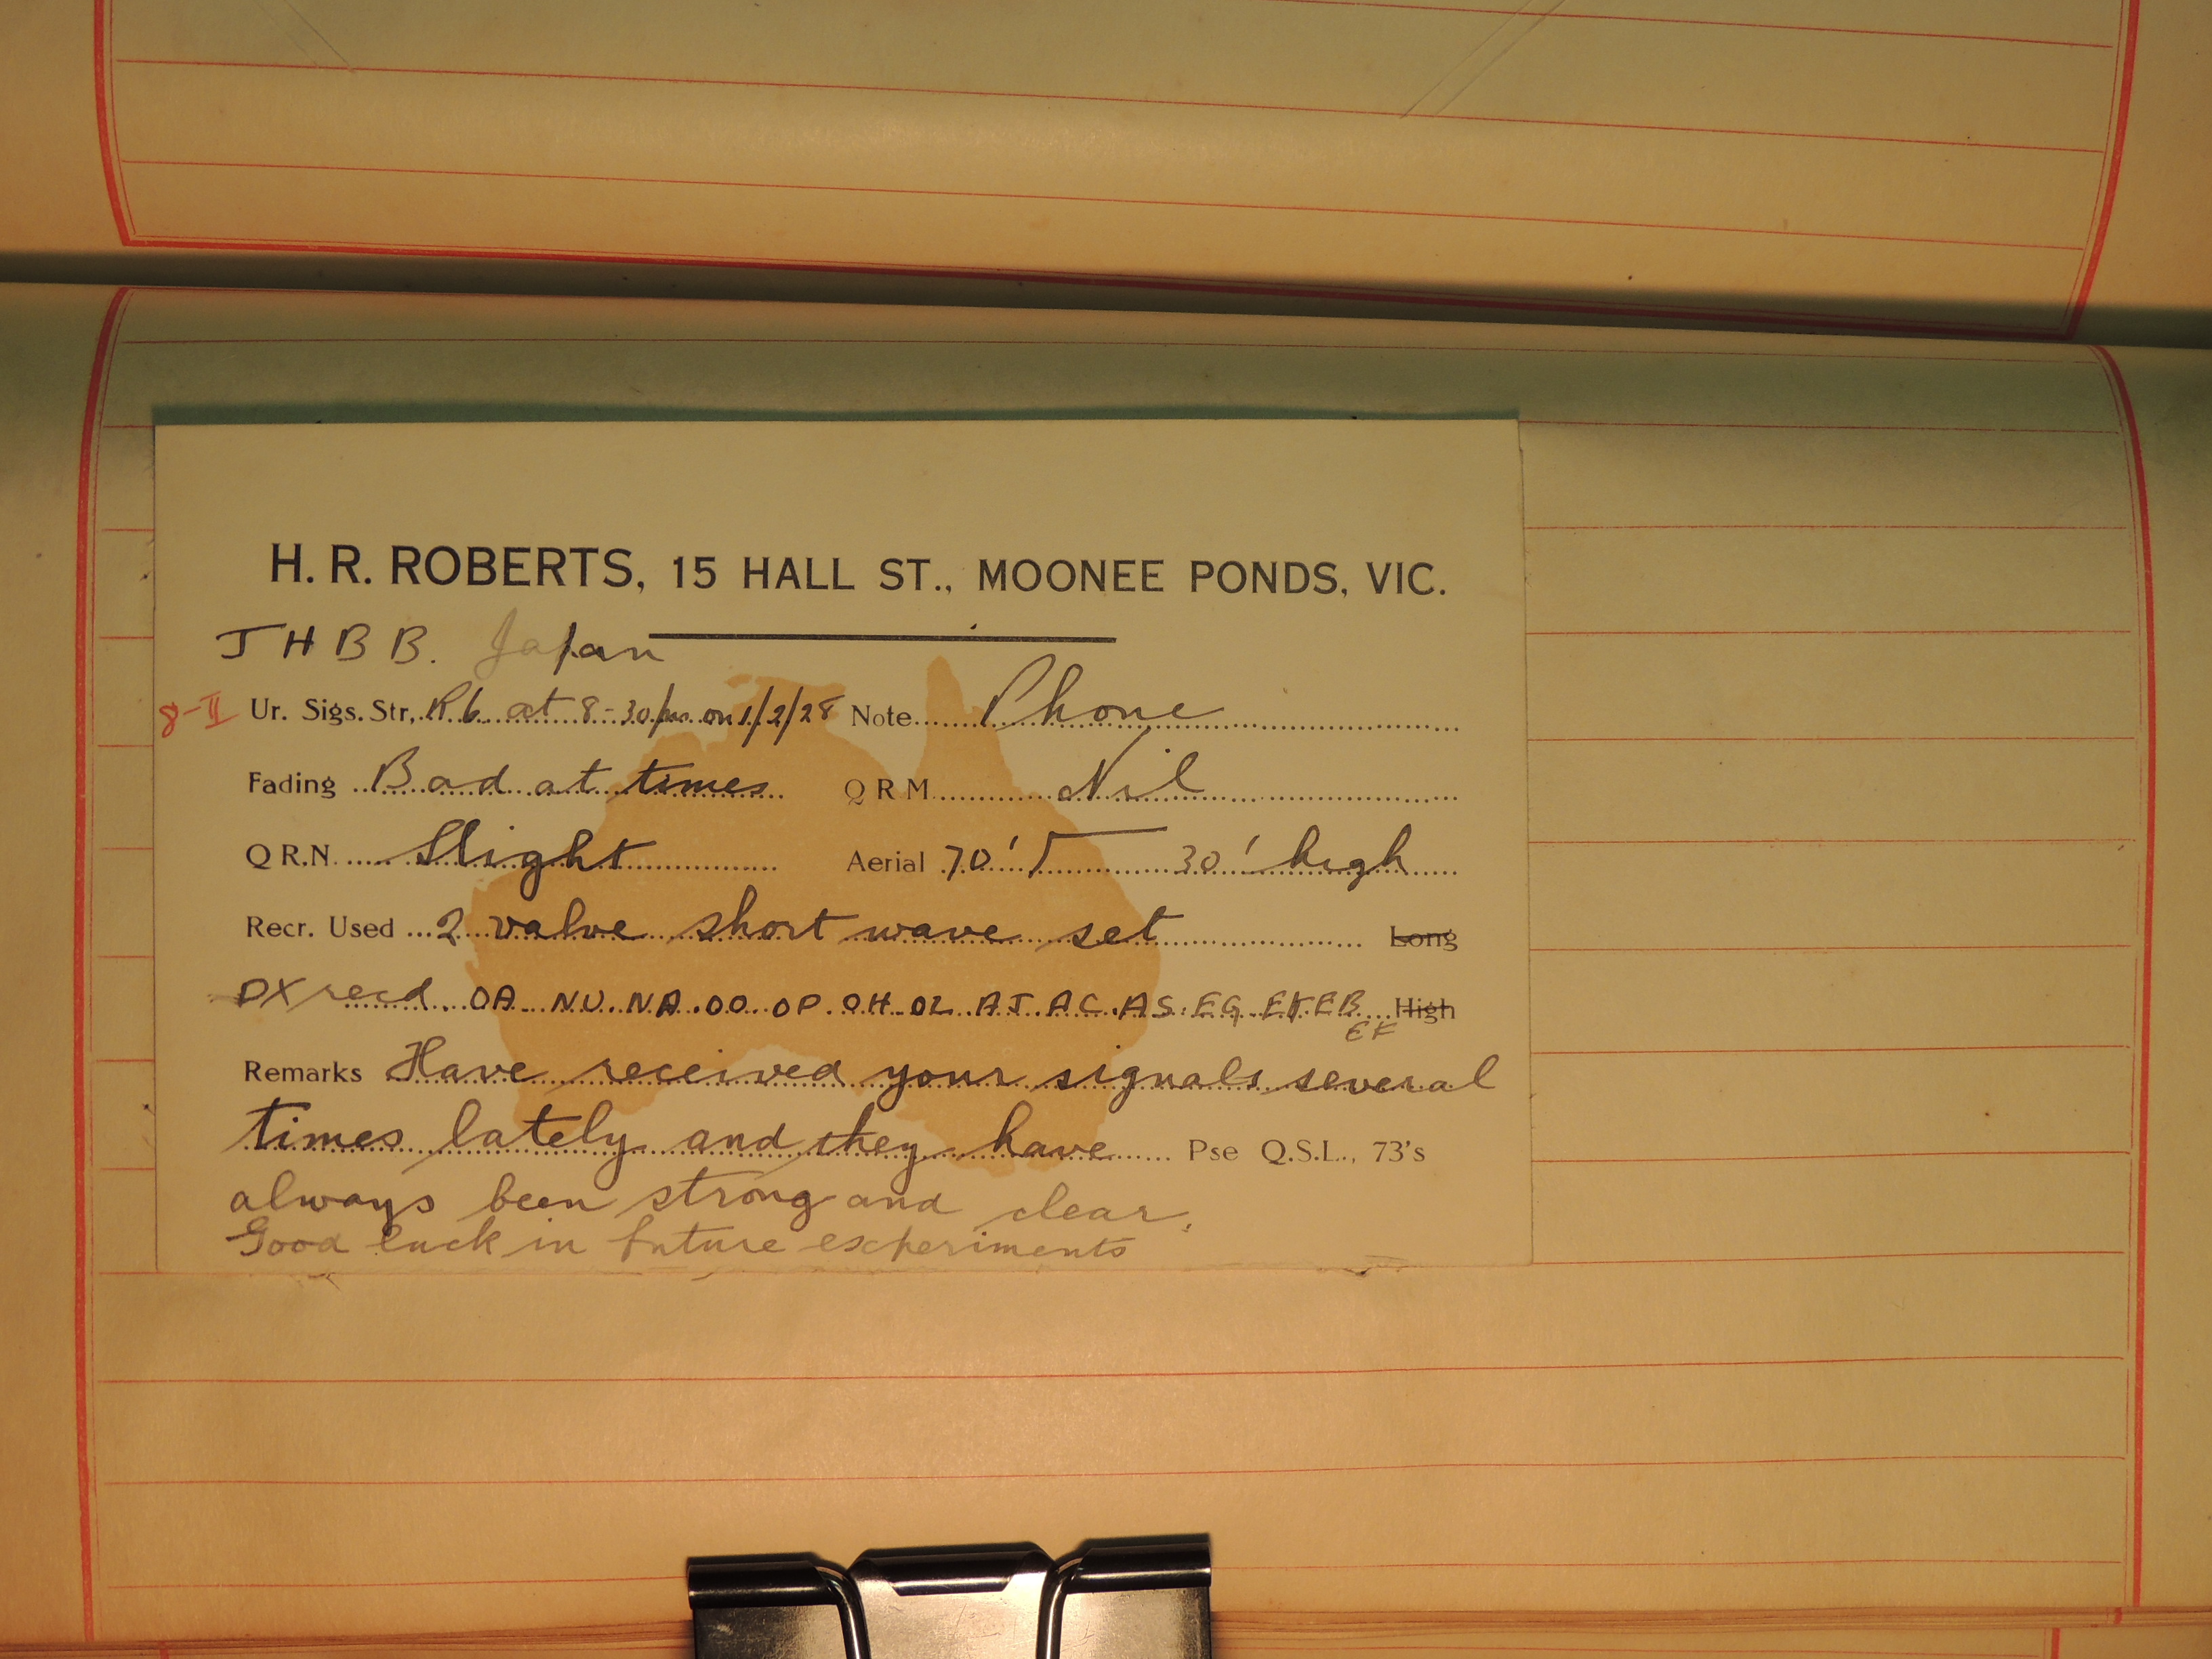 H. R. ROBERTS, 15 HALL ST., MOONEE PONDS, VIC.
JHBB. Japan
8-II Ur. Sigs. Str, R6 at 8-30 pm on 1/2/28 Note Phone
Fading Bad at times Q R M Nil
Q R.N. Slight Aerial 70' 30' high
Recr. Used 2 valve short wave set Long
DX recd OA NU. NA. OO OP. OH OZ AJ. AC. AS. EG EB High
EF
Remarks Have received your signals several
times lately and they have Pse Q.S.L., 73's
always been strong and clear.
Good luck in future experiments